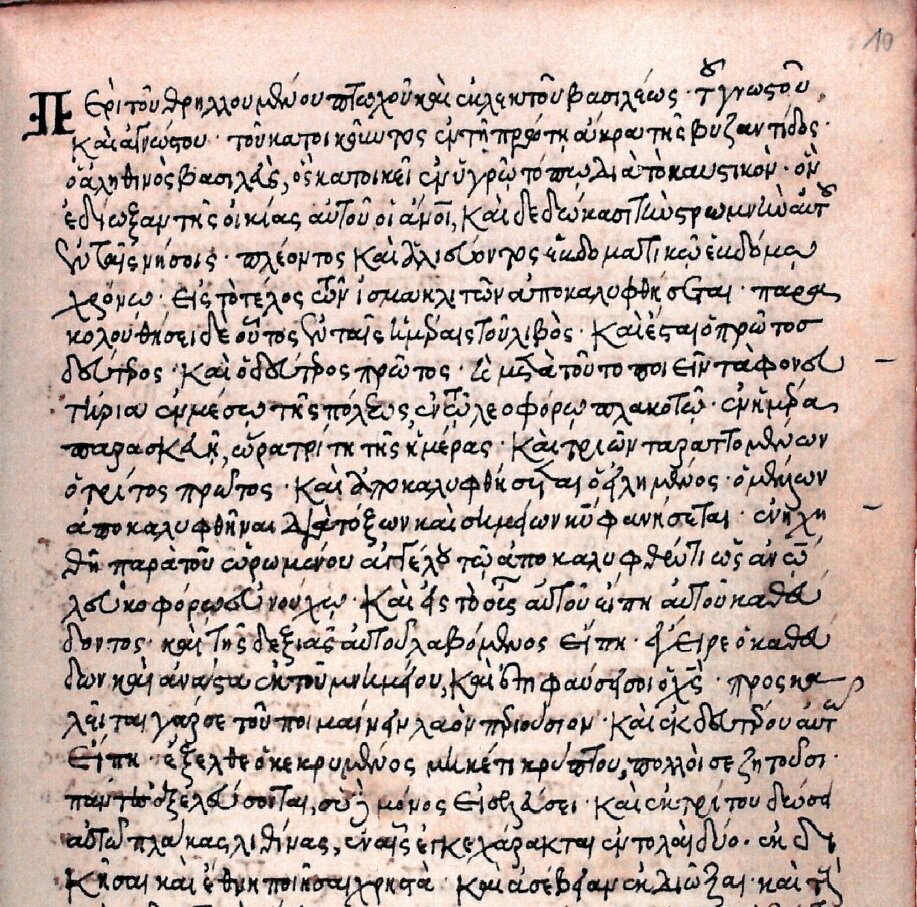 10
Περὶ τοῦ θρηλλουμένου πτωχοῦ καὶ ἐκλεκτοῦ βασιλέως· τοῦ γνωστοῦ
καὶ ἀγνώστου· τοῦ κατοικοῦντος ἐν τῇ πρώτῃ ἄκρα τῆς βυζαντίδος·
ὁ ἀληθινὸς βασιλεὺς, ὃς κατοικεῖ ἐν ὑγρῷ τὸ καυστικὸν· ὃν
ἐδίωξαν τῆς οἰκίας αὐτοῦ οἱ ἄνοι, καὶ δεδώκασι
ἐν ταῖς νήσοις· πλέοντος καὶ ἁλιεύοντος ἑκδοματικῶ ἑκδόμω
χρόνω· εἰς τὸ τέλος τῶν ἰσμαηλιτῶν ἀποκαλυφθήσεται· παρα
κολουθήσει δὲ οὗτος ἐν ταῖς ἡμέραις τοῦ λιβὸς· καὶ ἔσται ὁ πρῶτος
δεύτερος· καὶ ὁ δεύτερος πρῶτος· μετὰ τοῦτο ποιεῖν τὰ φονευ
τήρια ἐν μέσῳ τῆς πόλεως, ἐν ἡμέρα
παρασκευῇ, ὥρα τρίτη τῆς ἡμέρας· καὶ τριῶν ταραττομένων
ὁ τρίτος πρῶτος· καὶ ἀποκαλυφθήσεται ὁ ἠλημμένος· ὁ μέλλων
ἀποκαλυφθῆναι διὰ τόξων καὶ σημείων κ(αὶ) φανήσεται· ἐνηχη
θῆ παρὰ τοῦ ὁρωμένου ἀγγέλου τῷ ἀποκαλυφθέντι ὡς ἀνῶ
λευκοφόρω εὐνούχω· καὶ εἰς τὸ οὖς αὐτοῦ εἴπη αὐτοῦ καθεύ
δοντος· καὶ τῆς δεξιᾶς αὐτοῦ λαβόμενος εἴπη· ἔγειρε ὁ καθεύ
δων καὶ ἀνάστα ἐκ τοῦ μνημείου, καὶ ἐπιφαύσει σοι ὁ χς· προσκα
λεῖται γάρ σε τοῦ ποιμαίνειν λαὸν περιούσιον· καὶ ἐκ δευτέρου αὐτῶ
εἴπη· ἔξελθε ὁ κεκρυμμένος μηκέτι κρύπτου, πολλοί σε ζητοῦσι·
καὶ ἐκ τρίτου δώσει
αὐτῶ πλάκας λιθίνας, ἐν αἷς ἐγκεχάρακται ἐντολαὶ δύο· ἐκδι
κῆσαι καὶ ἔθνη ποιῆσαι χρηστὰ· καὶ ἀσέβειαν ἐκδιῶξαι· καὶ